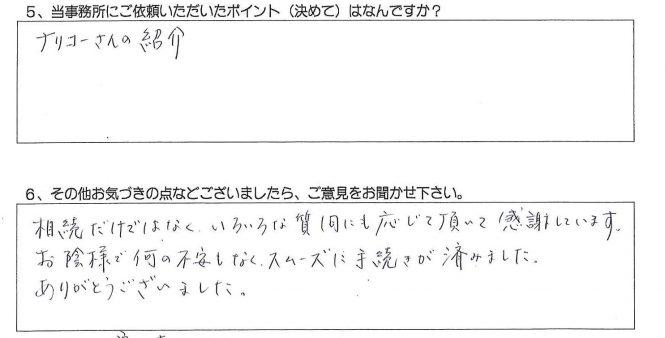 5、当事務所にご依頼いただいたポイント（決めて）はなんですか？
ナリコーさんの紹介
6、その他お気づきの点などございましたら、ご意見をお聞かせ下さい。
相続だけではなく、いろいろな質問にも応じて頂いて感謝しています。
お陰様で何の不安もなく、スムーズに手続きが済みました。
ありがとうございました。